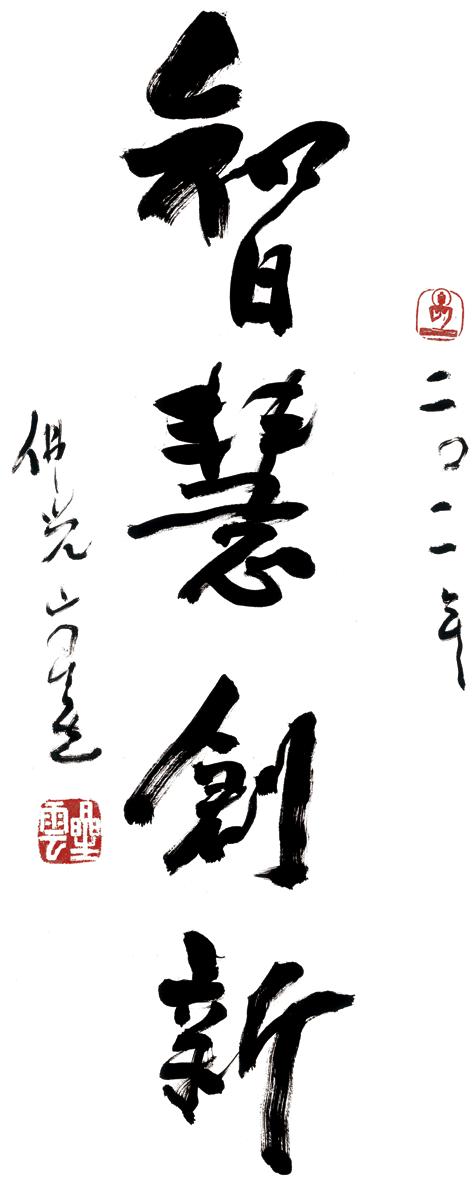 二〇一一年
智慧創新
佛光山星雲
星雲